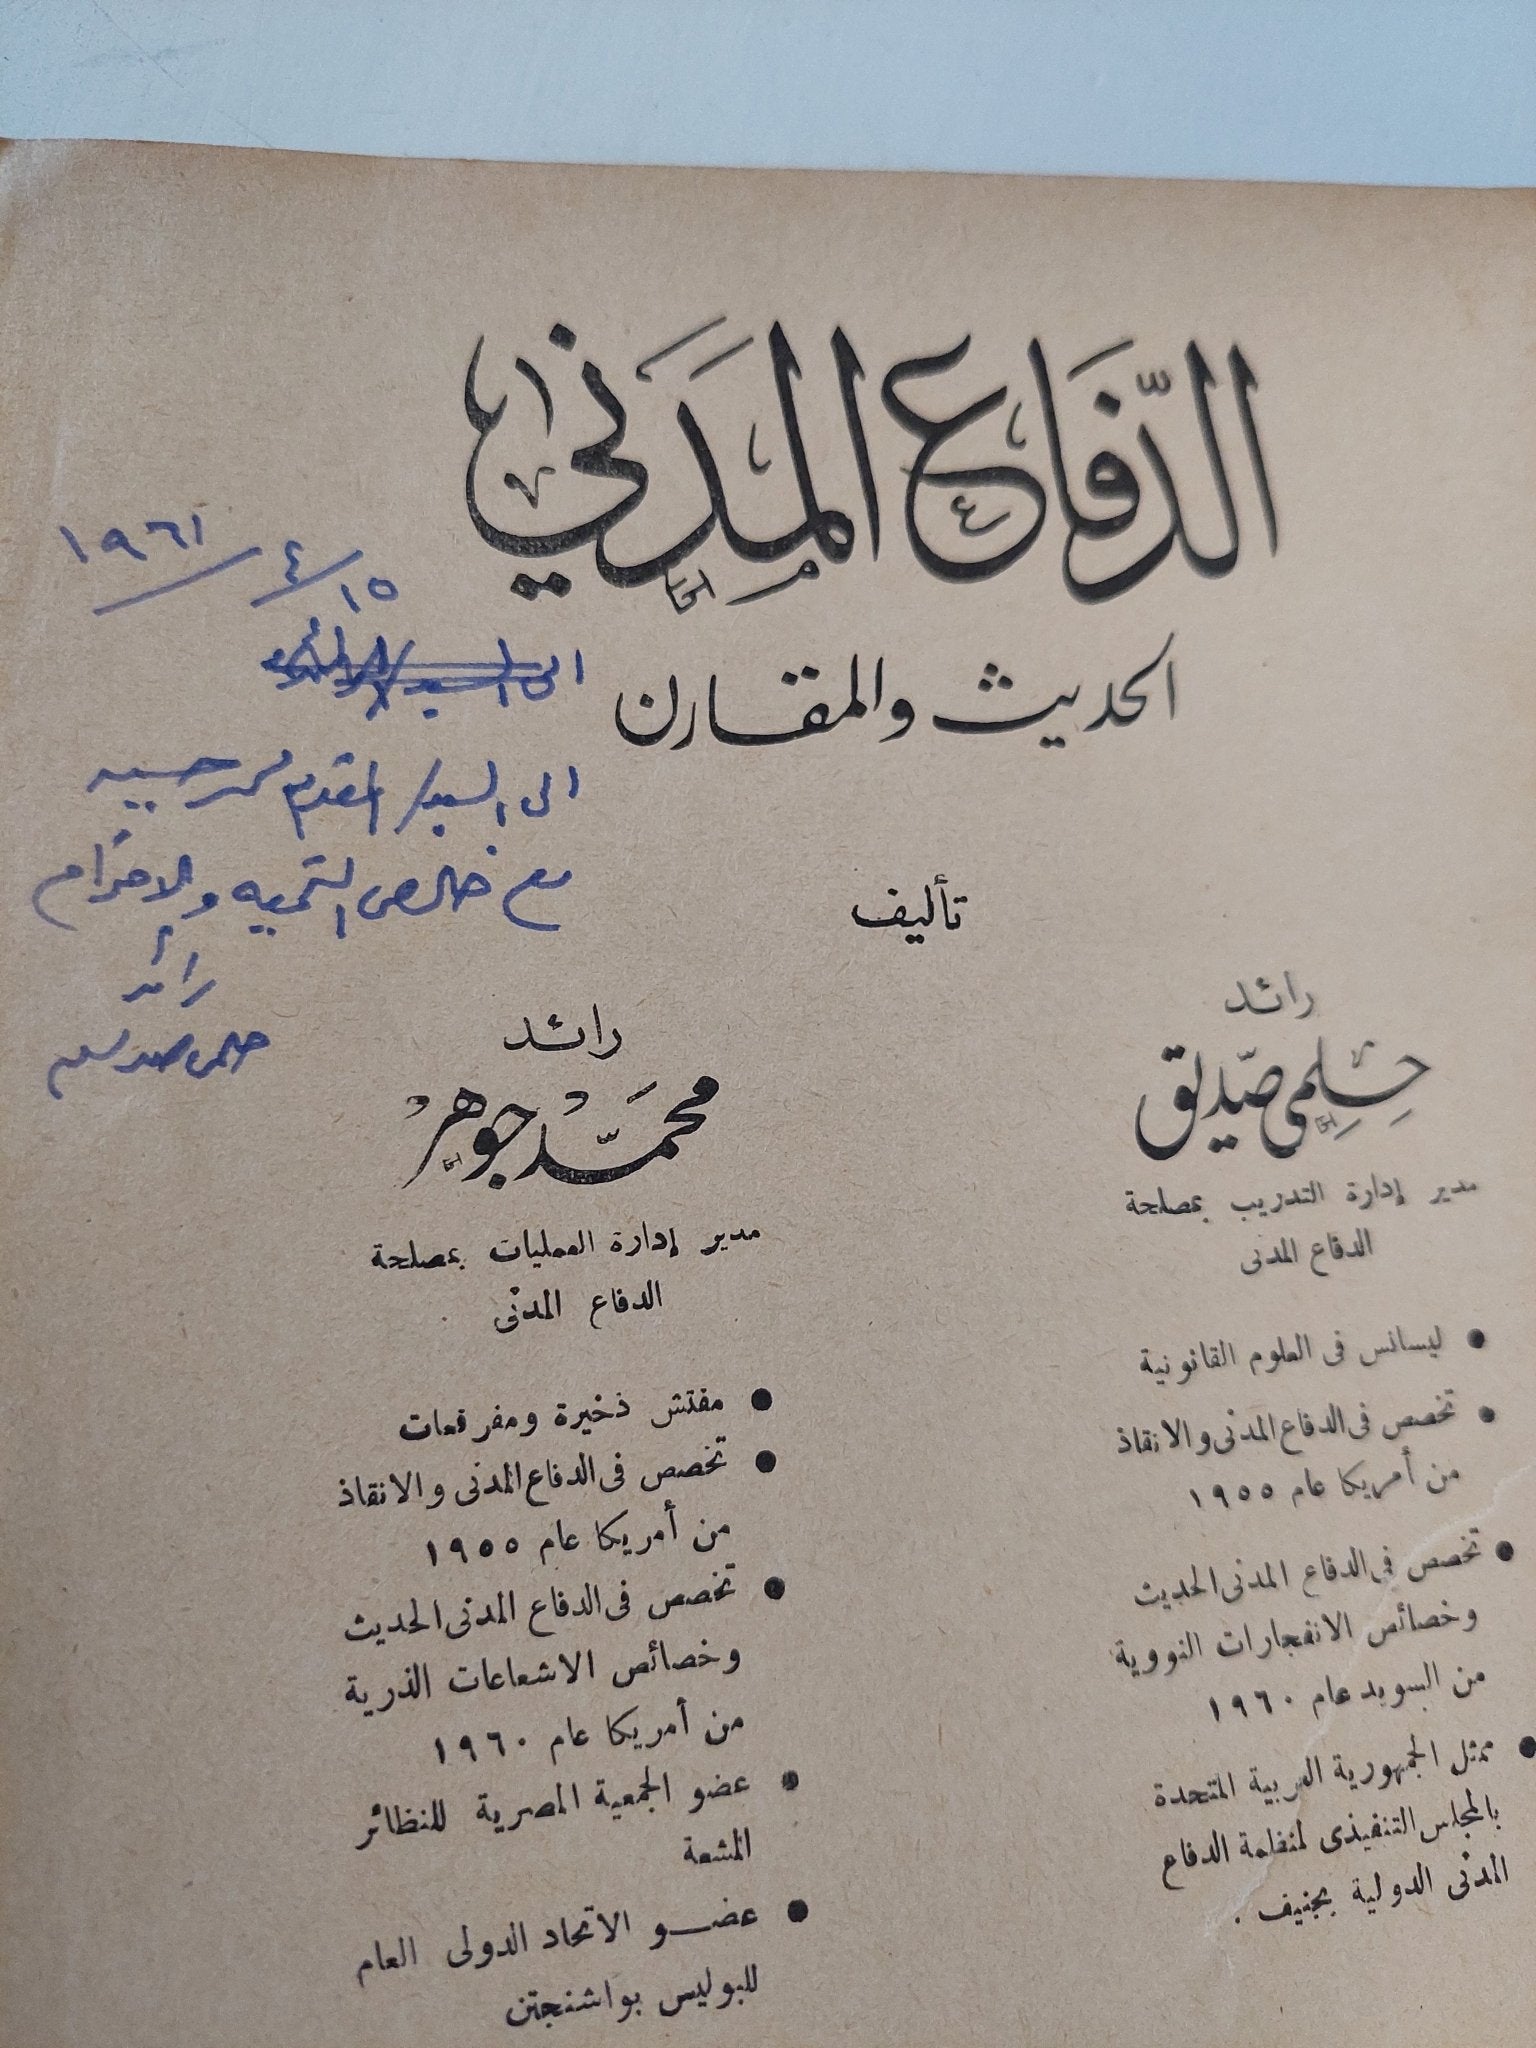 الدِّفَاع المَدَني
الحديث والمقارن
١٥/٤/١٩٦١
الى السيد
الى السيد/ المقدم محمد حسيب
مع خالص التحية والاحترام
رائد
حلمى صديق
تأليف
رائد
حِلمِى صِدّيق
مدير إدارة التدريب بمصلحة
الدفاع المدنى
● ليسانس فى العلوم القانونية
● تخصص فى الدفاع المدنى والانقاذ
من أمريكا عام ١٩٥٥
● تخصص فى الدفاع المدنى الحديث
وخصائص الانفجارات النووية
من السويد عام ١٩٦٠
● ممثل الجمهورية العربية المتحدة
بالمجلس التنفيذى لمنظمة الدفاع
المدنى الدولية بجنيف .
رائد
محمَّد جوهر
مدير إدارة العمليات بمصلحة
الدفاع المدنى
● مفتش ذخيرة ومفرقعات
● تخصص فى الدفاع المدنى والانقاذ
من أمريكا عام ١٩٥٥
● تخصص فى الدفاع المدنى الحديث
وخصائص الاشعاعات الذرية
من أمريكا عام ١٩٦٠
● عضو الجمعية المصرية للنظائر
المشعة
● عضو الاتحاد الدولى العام
للبوليس بواشنجتن